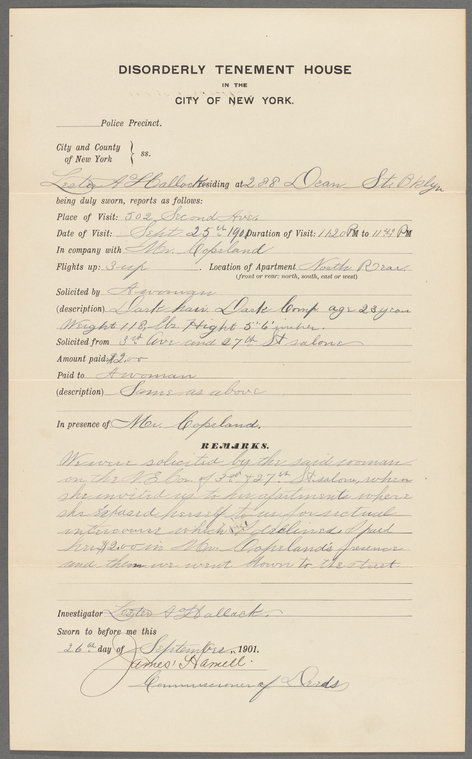 DISORDERLY TENEMENT HOUSE
IN THE
CITY OF NEW YORK.
Police Precinct.
City and County
of New York } ss.
Lester A Hallock residing at 288 Dean St. Bklyn
being duly sworn, reports as follows:
Place of Visit: 302 Second Ave
Date of Visit: Sept 25th 1901 Duration of Visit: 11:20 PM to 11:40 PM
In company with Mr. Copeland
Flights up: 3-up . Location of Apartment North Rear
(front or rear: north, south, east or west)
Solicited by A woman
(description) Dark hair Dark Comp age 23 years
Weight 118, Hight 5" 6' inches.
Solicited from 3rd Ave and 27th St salone
Amount paid: $2.00
Paid to A woman
(description) Same as above
In presence of Mr. Copeland.
REMARKS.
We were solicited by the said woman
on the N.E. Cor. of 3rd & 27th St. salone, where
she invited us to her apartments where
she exposed herself to us for sectual
intercourse which I declined. I paid
her $2.00 in Mr. Copeland's presence
and then we went down to the street
Investigator Lester A Hallock.
Sworn to before me this
26th day of September, 1901.
James Hamell.
Commissioner of Deeds